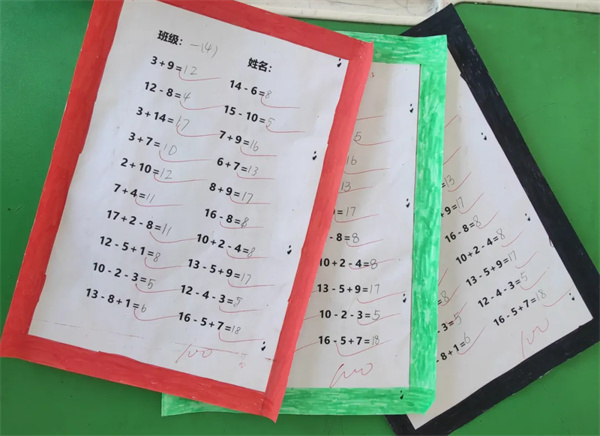 班级: 一(4) 姓名:
3+9=12 14-6=8
12-8=4 15-10=5
3+14=17 7+9=16
3+7=10 6+7=13
2+10=12 8+9=17
7+4=11 16-8=8
17+2-8=11 10+2-4=8
12-5+1=8 13-5+9=17
10-2-3=5 12-4-3=5
13-8+1=6 16-5+7=18
100
5
16
13
=17
-8=8
10+2-4=8
13-5+9=17
10-2-3=5
16-5+7=18
100
13
+9=17
16-8=8
10+2-4=8
13-5+9=17
=8 12-4-3=5
-3=5 16-5+7=18
-8+1=6
100